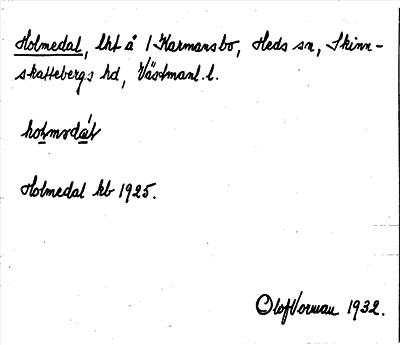 Holmedal, lht å 1 Karmansbo, Heds sn, Skinn-
skattebergs hd, Västmanl. l.
hoḷmsdál
Holmedal kb 1925.
Olof Vorman 1932.